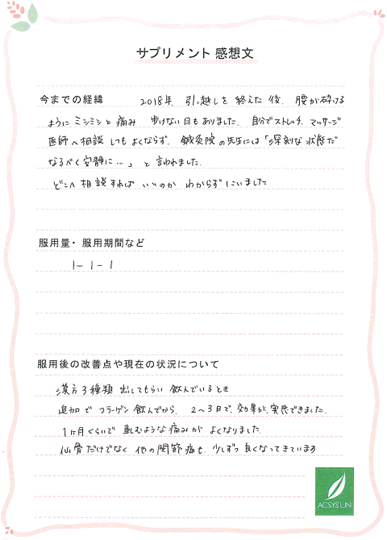 サプリメント 感想文
今までの経緯 2018年 引っ越しを終えた後、腰が砕ける
ようにミシミシと痛み 歩けない日もありました。自分でストレッチ、マッサージ
医師へ相談してもよくならず、鍼灸院の先生には「深刻な状態だ
なるべく安静に…」と言われました。
どこへ相談すればいいのか わからずにいました
服用量・服用期間など
1-1-1
服用後の改善点や現在の状況について
漢方3種類 出してもらい 飲んでいるとき
追加で コラーゲン 飲んでから、2〜3日で、効果を実感できました。
1ヶ月くらいで 軋むような痛みが よくなりました。
仙骨だけでなく 他の関節痛も 少しずつ良くなってきています
ACSYSUN